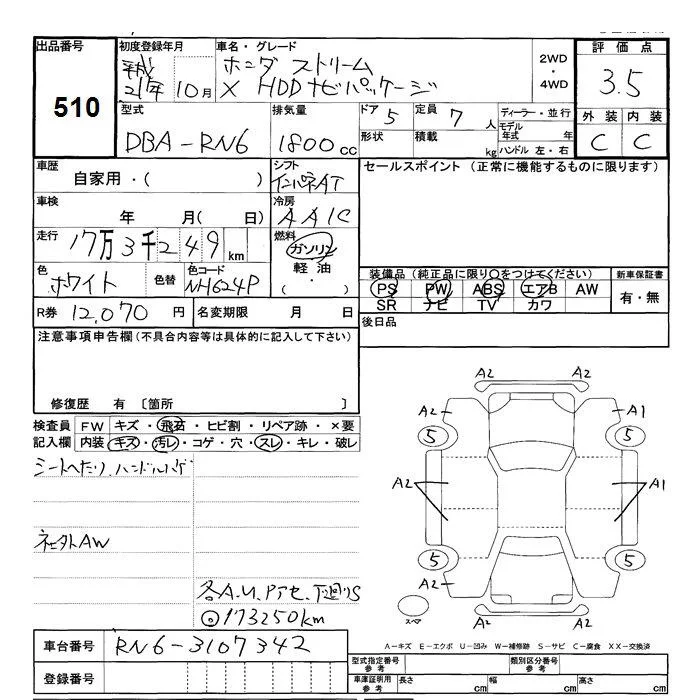 出品番号
510
初度登録年月
平成21年10月
車名・グレード
ホンダ ストリーム
X HDDナビパッケージ
2WD
・
4WD
評価点
3.5
外装 内装
C C
型式
DBA-RN6
排気量
1800cc
ドア 5
形状
定員 7人
積載 kg
ディーラー・並行
モデル年式 年
ハンドル 左・右
車歴
自家用・( )
シフト
インパネAT
セールスポイント(正常に機能するものに限ります)
車検
年 月( 日)
冷房
AAIC
走行
17万3千249km
燃料
ガソリン
軽油
・
( )
色
ホワイト
色替
色コード
NH624P
装備品(純正品に限り○をつけてください)
PS PW ABS エアB AW
SR ナビ TV カワ
新車保証書
有・無
R券 12,070円
名変期限 月 日
後日品
注意事項申告欄(不具合内容等は具体的に記入して下さい)
修復歴 有 〔箇所 〕
検査員記入欄
FW キズ・飛石・ヒビ割・リペア跡・×要
内装 キズ・汚レ・コゲ・穴・スレ・キレ・破レ
シートへたり、ハンドルハゲ
社外AW
各A.U.
下廻りS
173250km
A2
A2
A2 A1
5 5
A2 A1
5 5
A2
A2
A-キズ E-エクボ U-凹み W-補修跡 S-サビ C-腐食 XX-交換済
車台番号 RN6-3107342
登録番号
型式指定番号
参考
類別区分番号
参考
車庫証明用
参考
長さ cm
幅 cm
高さ cm